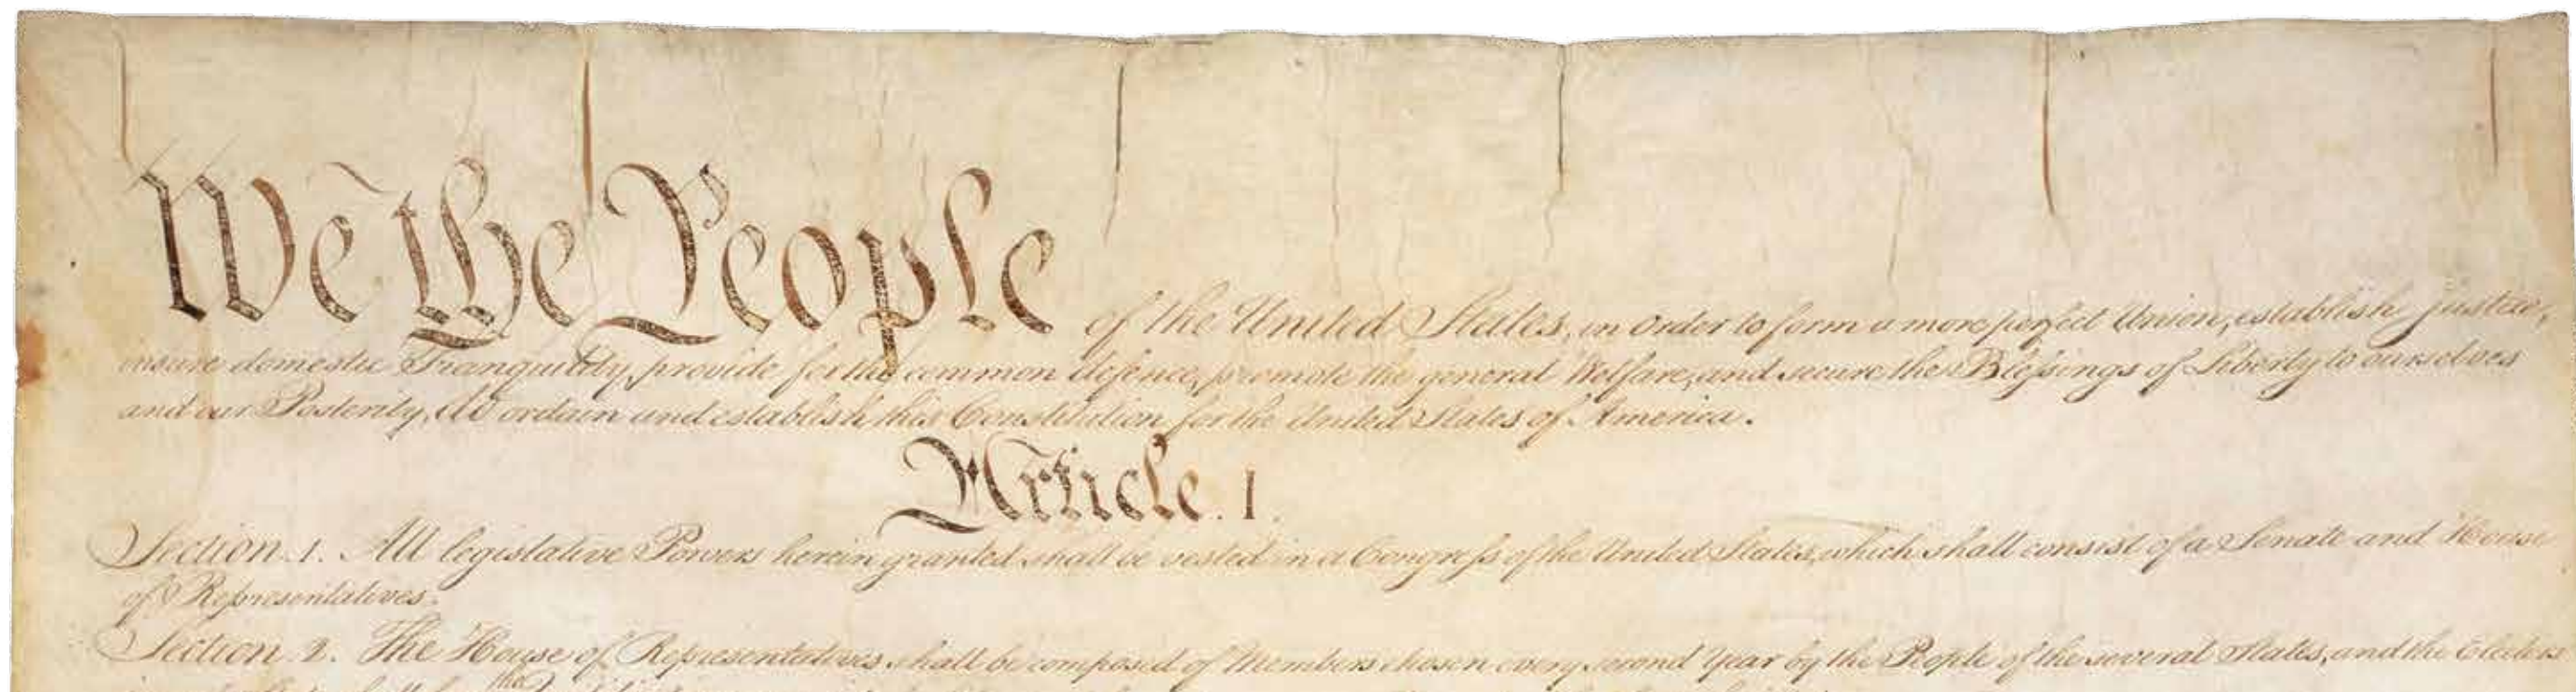 We the People of the United States, in Order to form a more perfect Union, establish Justice,
insure domestic Tranquility, provide for the common defence, promote the general Welfare, and secure the Blessings of Liberty to ourselves
and our Posterity, do ordain and establish this Constitution for the United States of America.
Article. I.
Section. 1. All legislative Powers herein granted shall be vested in a Congress of the United States, which shall consist of a Senate and House
of Representatives.
Section. 2. The House of Representatives shall be composed of Members chosen every second Year by the People of the several States, and the Electors
the